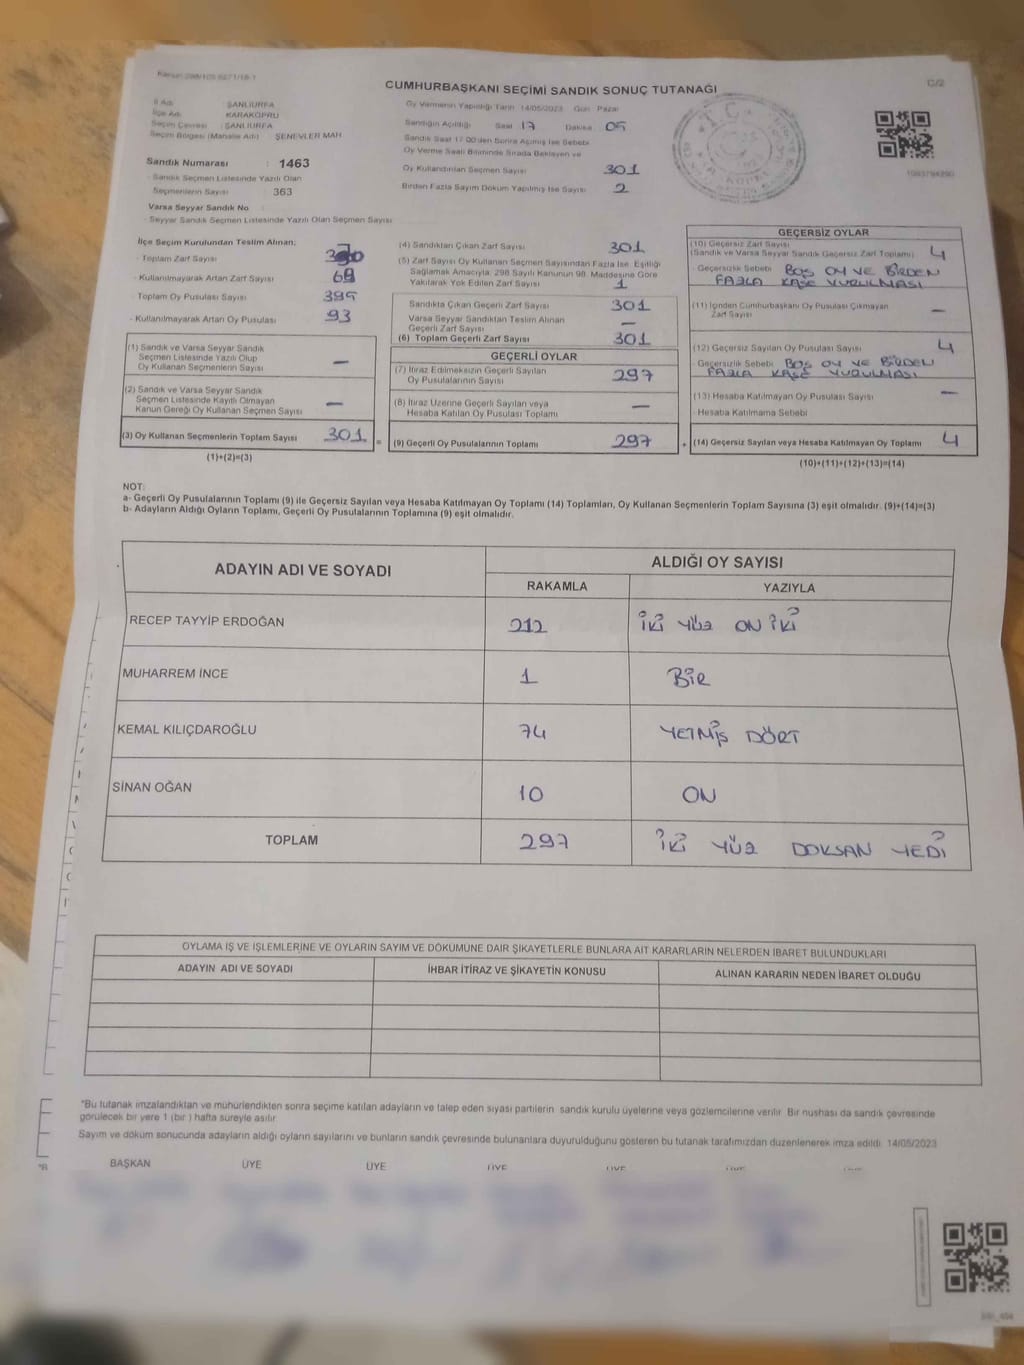 CUMHURBAŞKANI SEÇİMİ SANDIK SONUÇ TUTANAĞI
C/2
İl Adı ŞANLIURFA
İlçe Adı KARAKÖPRÜ
Seçim Çevresi : ŞANLIURFA
Seçim Bölgesi (Mahalle Adı) ŞENEVLER MAH
Sandık Numarası : 1463
- Sandık Seçmen Listesinde Yazılı Olan
Seçmenlerin Sayısı 363
Varsa Seyyar Sandık No
- Seyyar Sandık Seçmen Listesinde Yazılı Olan Seçmen Sayısı
Oy Vermenin Yapıldığı Tarih 14/05/2023 Gün Pazar
Sandığın Açıldığı Saat 17 Dakika 05
Sandık Saat 17.00'den Sonra Açılmış İse Sebebi
Oy Verme Saati Bitiminde Sırada Bekleyen ve
Oy Kullandırılan Seçmen Sayısı 301
Birden Fazla Sayım Döküm Yapılmış İse Sayısı 2
İlçe Seçim Kurulundan Teslim Alınan;
- Toplam Zarf Sayısı
- Kullanılmayarak Artan Zarf Sayısı
- Toplam Oy Pusulası Sayısı
- Kullanılmayarak Artan Oy Pusulası 93
(1) Sandık ve Varsa Seyyar Sandık
Seçmen Listesinde Yazılı Olup
Oy Kullanan Seçmenlerin Sayısı —
(2) Sandık ve Varsa Seyyar Sandık
Seçmen Listesinde Kayıtlı Olmayan
Kanun Gereği Oy Kullanan Seçmen Sayısı —
(3) Oy Kullanan Seçmenlerin Toplam Sayısı 301
(1)+(2)=(3)
(4) Sandıktan Çıkan Zarf Sayısı 301
(5) Zarf Sayısı Oy Kullanan Seçmen Sayısından Fazla İse, Eşitliği
Sağlamak Amacıyla, 298 Sayılı Kanunun 98. Maddesine Göre
Yakılarak Yok Edilen Zarf Sayısı 1
Sandıkta Çıkan Geçerli Zarf Sayısı 301
Varsa Seyyar Sandıktan Teslim Alınan
Geçerli Zarf Sayısı —
(6) Toplam Geçerli Zarf Sayısı 301
GEÇERLİ OYLAR
(7) İtiraz Edilmeksizin Geçerli Sayılan
Oy Pusulalarının Sayısı 297
(8) İtiraz Üzerine Geçerli Sayılan veya
Hesaba Katılan Oy Pusulası Toplamı —
= (9) Geçerli Oy Pusulalarının Toplamı 297
GEÇERSİZ OYLAR
(10) Geçersiz Zarf Sayısı
(Sandık ve Varsa Seyyar Sandık Geçersiz Zarf Toplamı) 4
- Geçersizlik Sebebi BOŞ OY VE BİRDEN
FAZLA KAŞE VURULMASI
(11) İçinden Cumhurbaşkanı Oy Pusulası Çıkmayan
Zarf Sayısı —
(12) Geçersiz Sayılan Oy Pusulası Sayısı 4
- Geçersizlik Sebebi BOŞ OY VE BİRDEN
FAZLA KAŞE VURULMASI
(13) Hesaba Katılmayan Oy Pusulası Sayısı —
- Hesaba Katılmama Sebebi
+ (14) Geçersiz Sayılan veya Hesaba Katılmayan Oy Toplamı 4
(10)+(11)+(12)+(13)=(14)
NOT:
a- Geçerli Oy Pusulalarının Toplamı (9) ile Geçersiz Sayılan veya Hesaba Katılmayan Oy Toplamı (14) Toplamları, Oy Kullanan Seçmenlerin Toplam Sayısına (3) eşit olmalıdır. (9)+(14)=(3)
b- Adayların Aldığı Oyların Toplamı, Geçerli Oy Pusulalarının Toplamına (9) eşit olmalıdır.
ADAYIN ADI VE SOYADI ALDIĞI OY SAYISI
RAKAMLA YAZIYLA
RECEP TAYYİP ERDOĞAN 212 İKİ YÜZ ON İKİ
MUHARREM İNCE 1 BİR
KEMAL KILIÇDAROĞLU 74 YETMİŞ DÖRT
SİNAN OĞAN 10 ON
TOPLAM 297 İKİ YÜZ DOKSAN YEDİ
OYLAMA İŞ VE İŞLEMLERİNE VE OYLARIN SAYIM VE DÖKÜMÜNE DAİR ŞİKAYETLERLE BUNLARA AİT KARARLARIN NELERDEN İBARET BULUNDUKLARI
ADAYIN ADI VE SOYADI İHBAR İTİRAZ VE ŞİKAYETİN KONUSU ALINAN KARARIN NEDEN İBARET OLDUĞU
"Bu tutanak imzalandıktan ve mühürlendikten sonra seçime katılan adayların ve talep eden siyasi partilerin sandık kurulu üyelerine veya gözlemcilerine verilir. Bir nushası da sandık çevresinde
görülecek bir yere 1 (bir ) hafta süreyle asılır.
Sayım ve döküm sonucunda adayların aldığı oyların sayılarını ve bunların sandık çevresinde bulunanlara duyurulduğunu gösteren bu tutanak tarafımızdan düzenlenerek imza edildi. 14/05/2023
BAŞKAN ÜYE ÜYE ÜYE